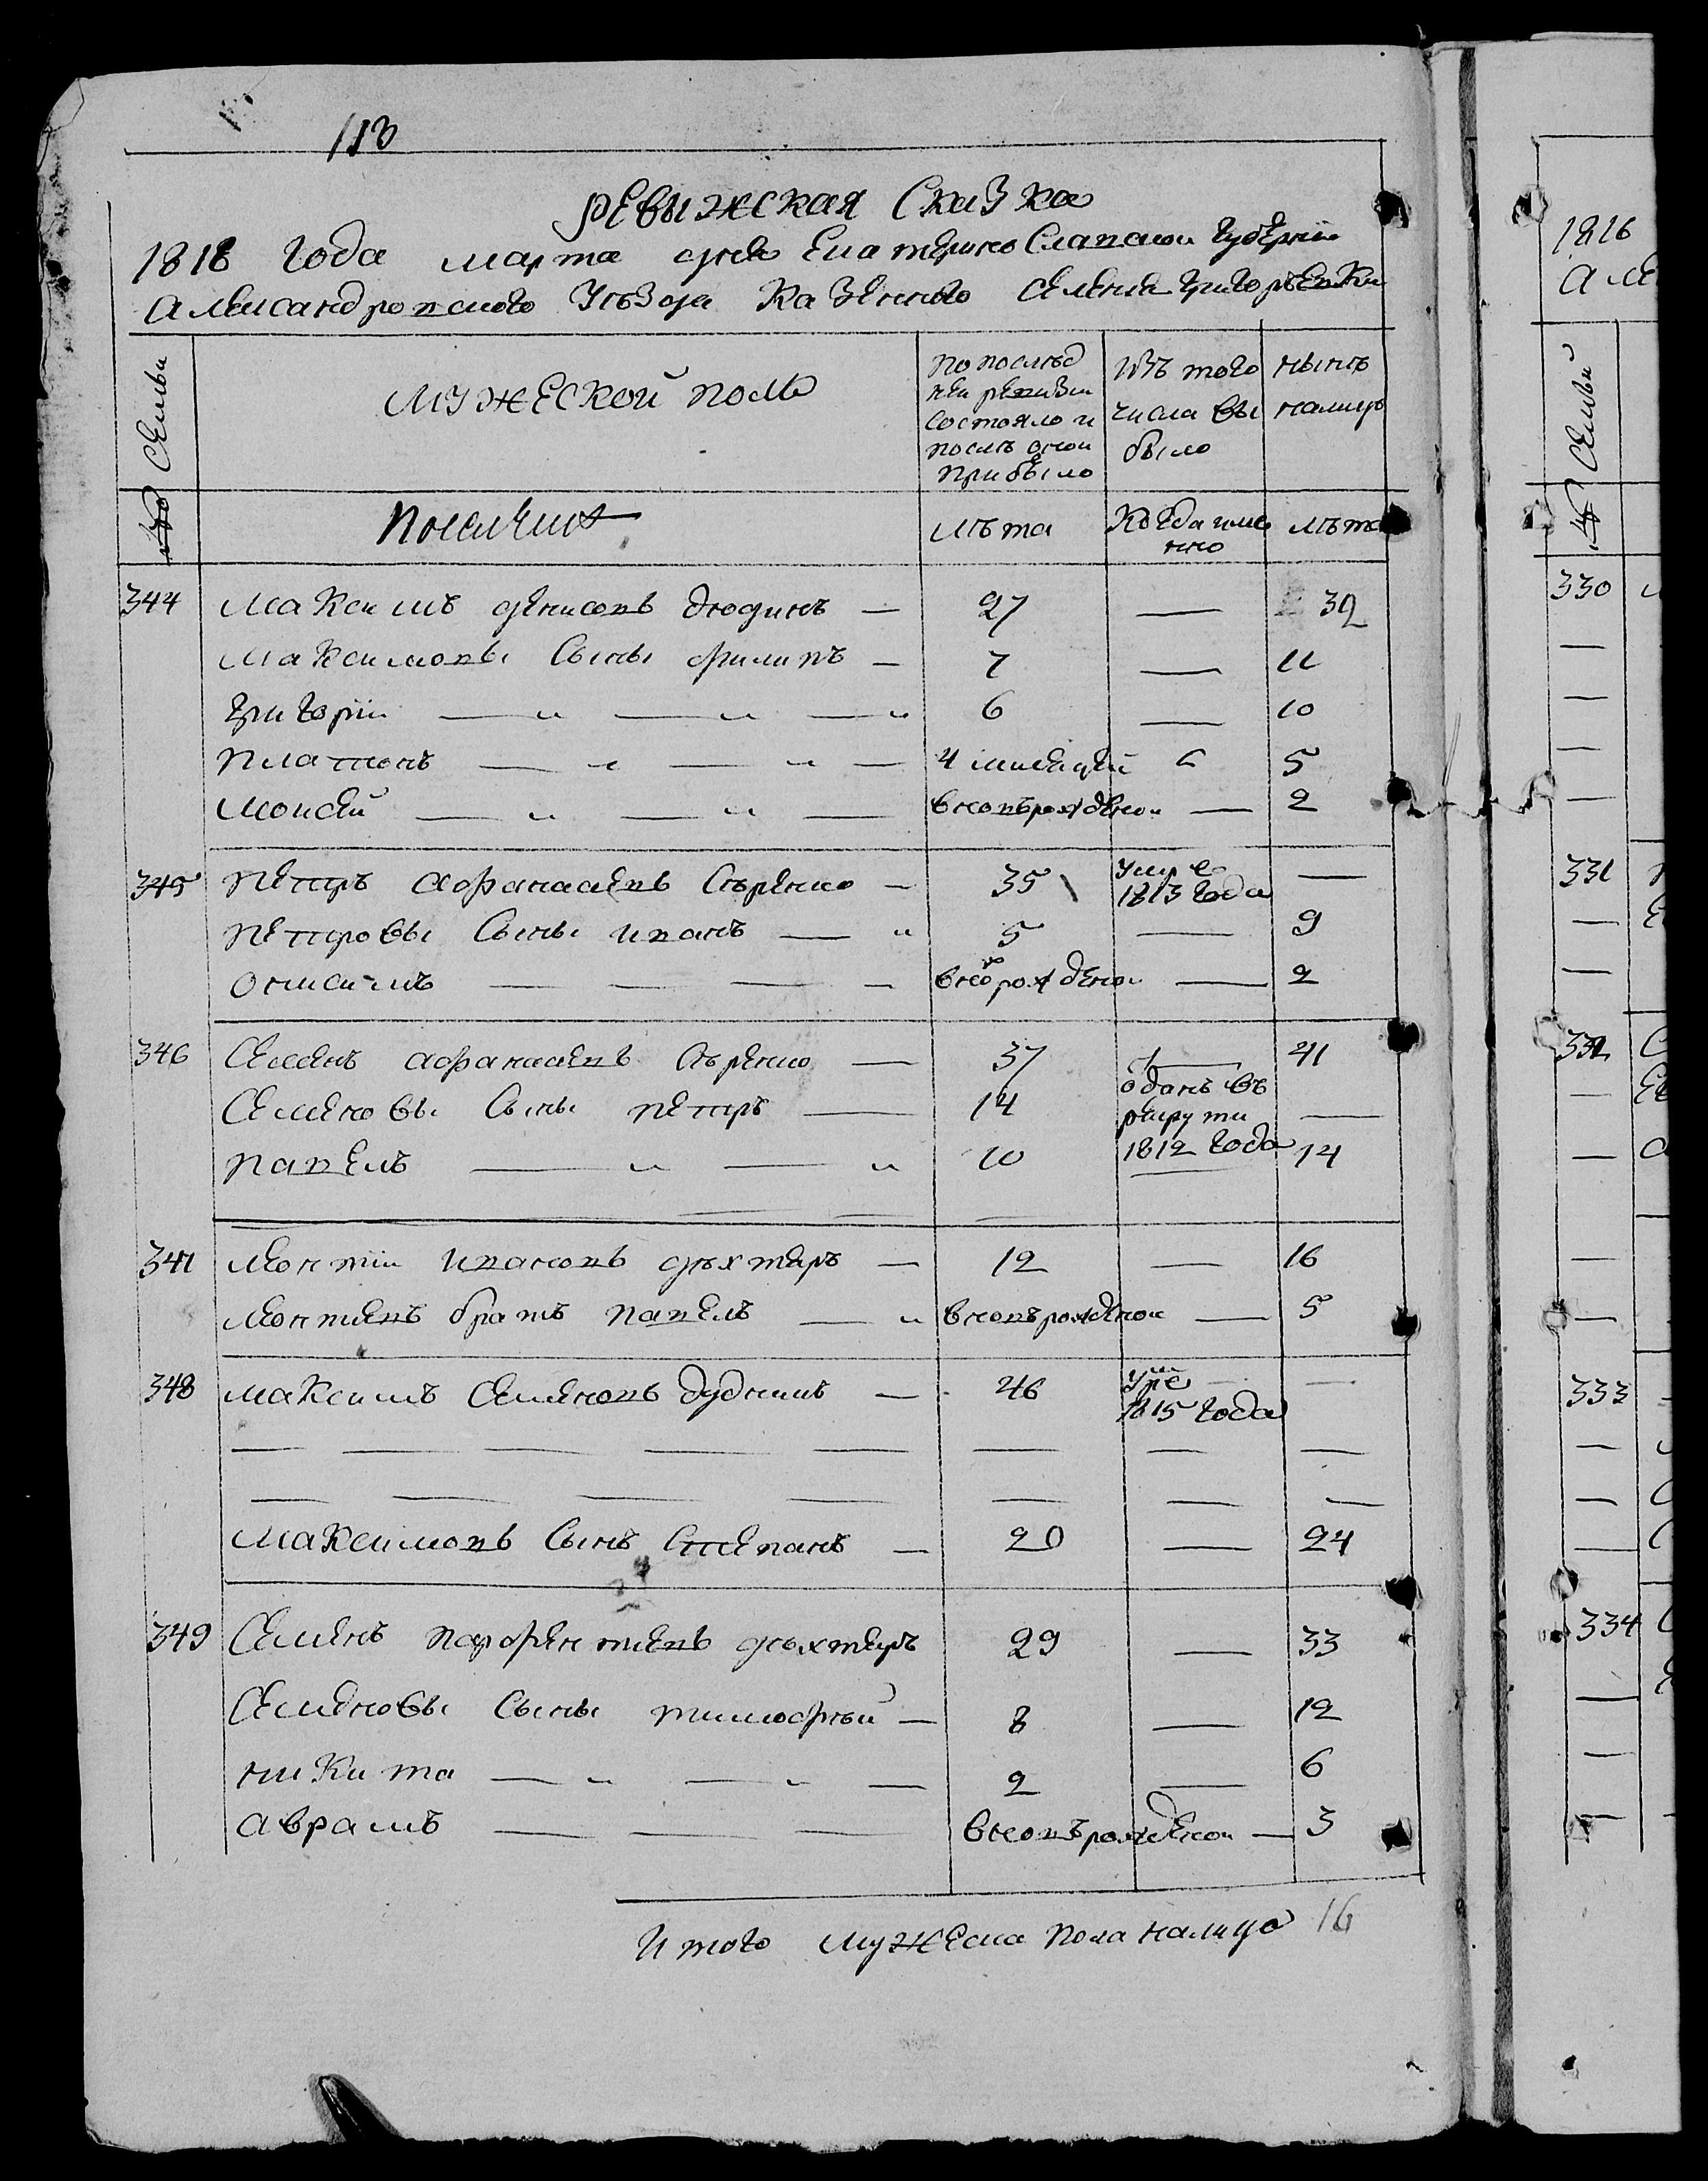 113
ревыжская Сказка
1818 года марта дня Екатеринославской губерніи
Александровского Уѣзда Казенного селения Григоревки
Семьи
мужеской полъ
по послѣд
неи ревизии
состояло и
послѣ онои
прибыло
изъ того
числа вы
было
нынѣ
налицо
№
лѣта
Когда име
нно
лѣта
344 Максимъ денисовъ дюдинъ — 27 — 32
Максимовы Сыны филипъ — 7 — 11
григоріи — „ — „ — „ 6 — 10
платонъ — „ — „ — 4 5
Моисей — „ — „ — вновърожденои — 2
345 петръ афанасиевъ — 35 умре 1813 года —
петровы Сыны иванъ — „ 5 — 9
онисимъ — — — — вноворожденои — 2
346 Семенъ афанасиевъ — 37 — 41
Семеновы Сыны петръ — 14 отданъ въ рекруты 1812 года —
павелъ — „ — „ 10 — 14
леонтіи ивановъ дехтярь — 12 — 16
леонтиевъ братъ павелъ — „ вновърожденои — 5
348 максимъ Семеновъ дудникъ — 46 умре 1815 года —
Максимовъ Сынъ Степанъ — 20 — 24
349 Семенъ парфентиевъ дехтярь 29 — 33
Семеновы Сыны тимофѣй — 8 — 12
никита — „ — „ — 2 — 6
аврамъ — — — вновърожденои — 3
Итого мужеска пола налицо 16
1816
Семьи
№
330
331
332
333
334